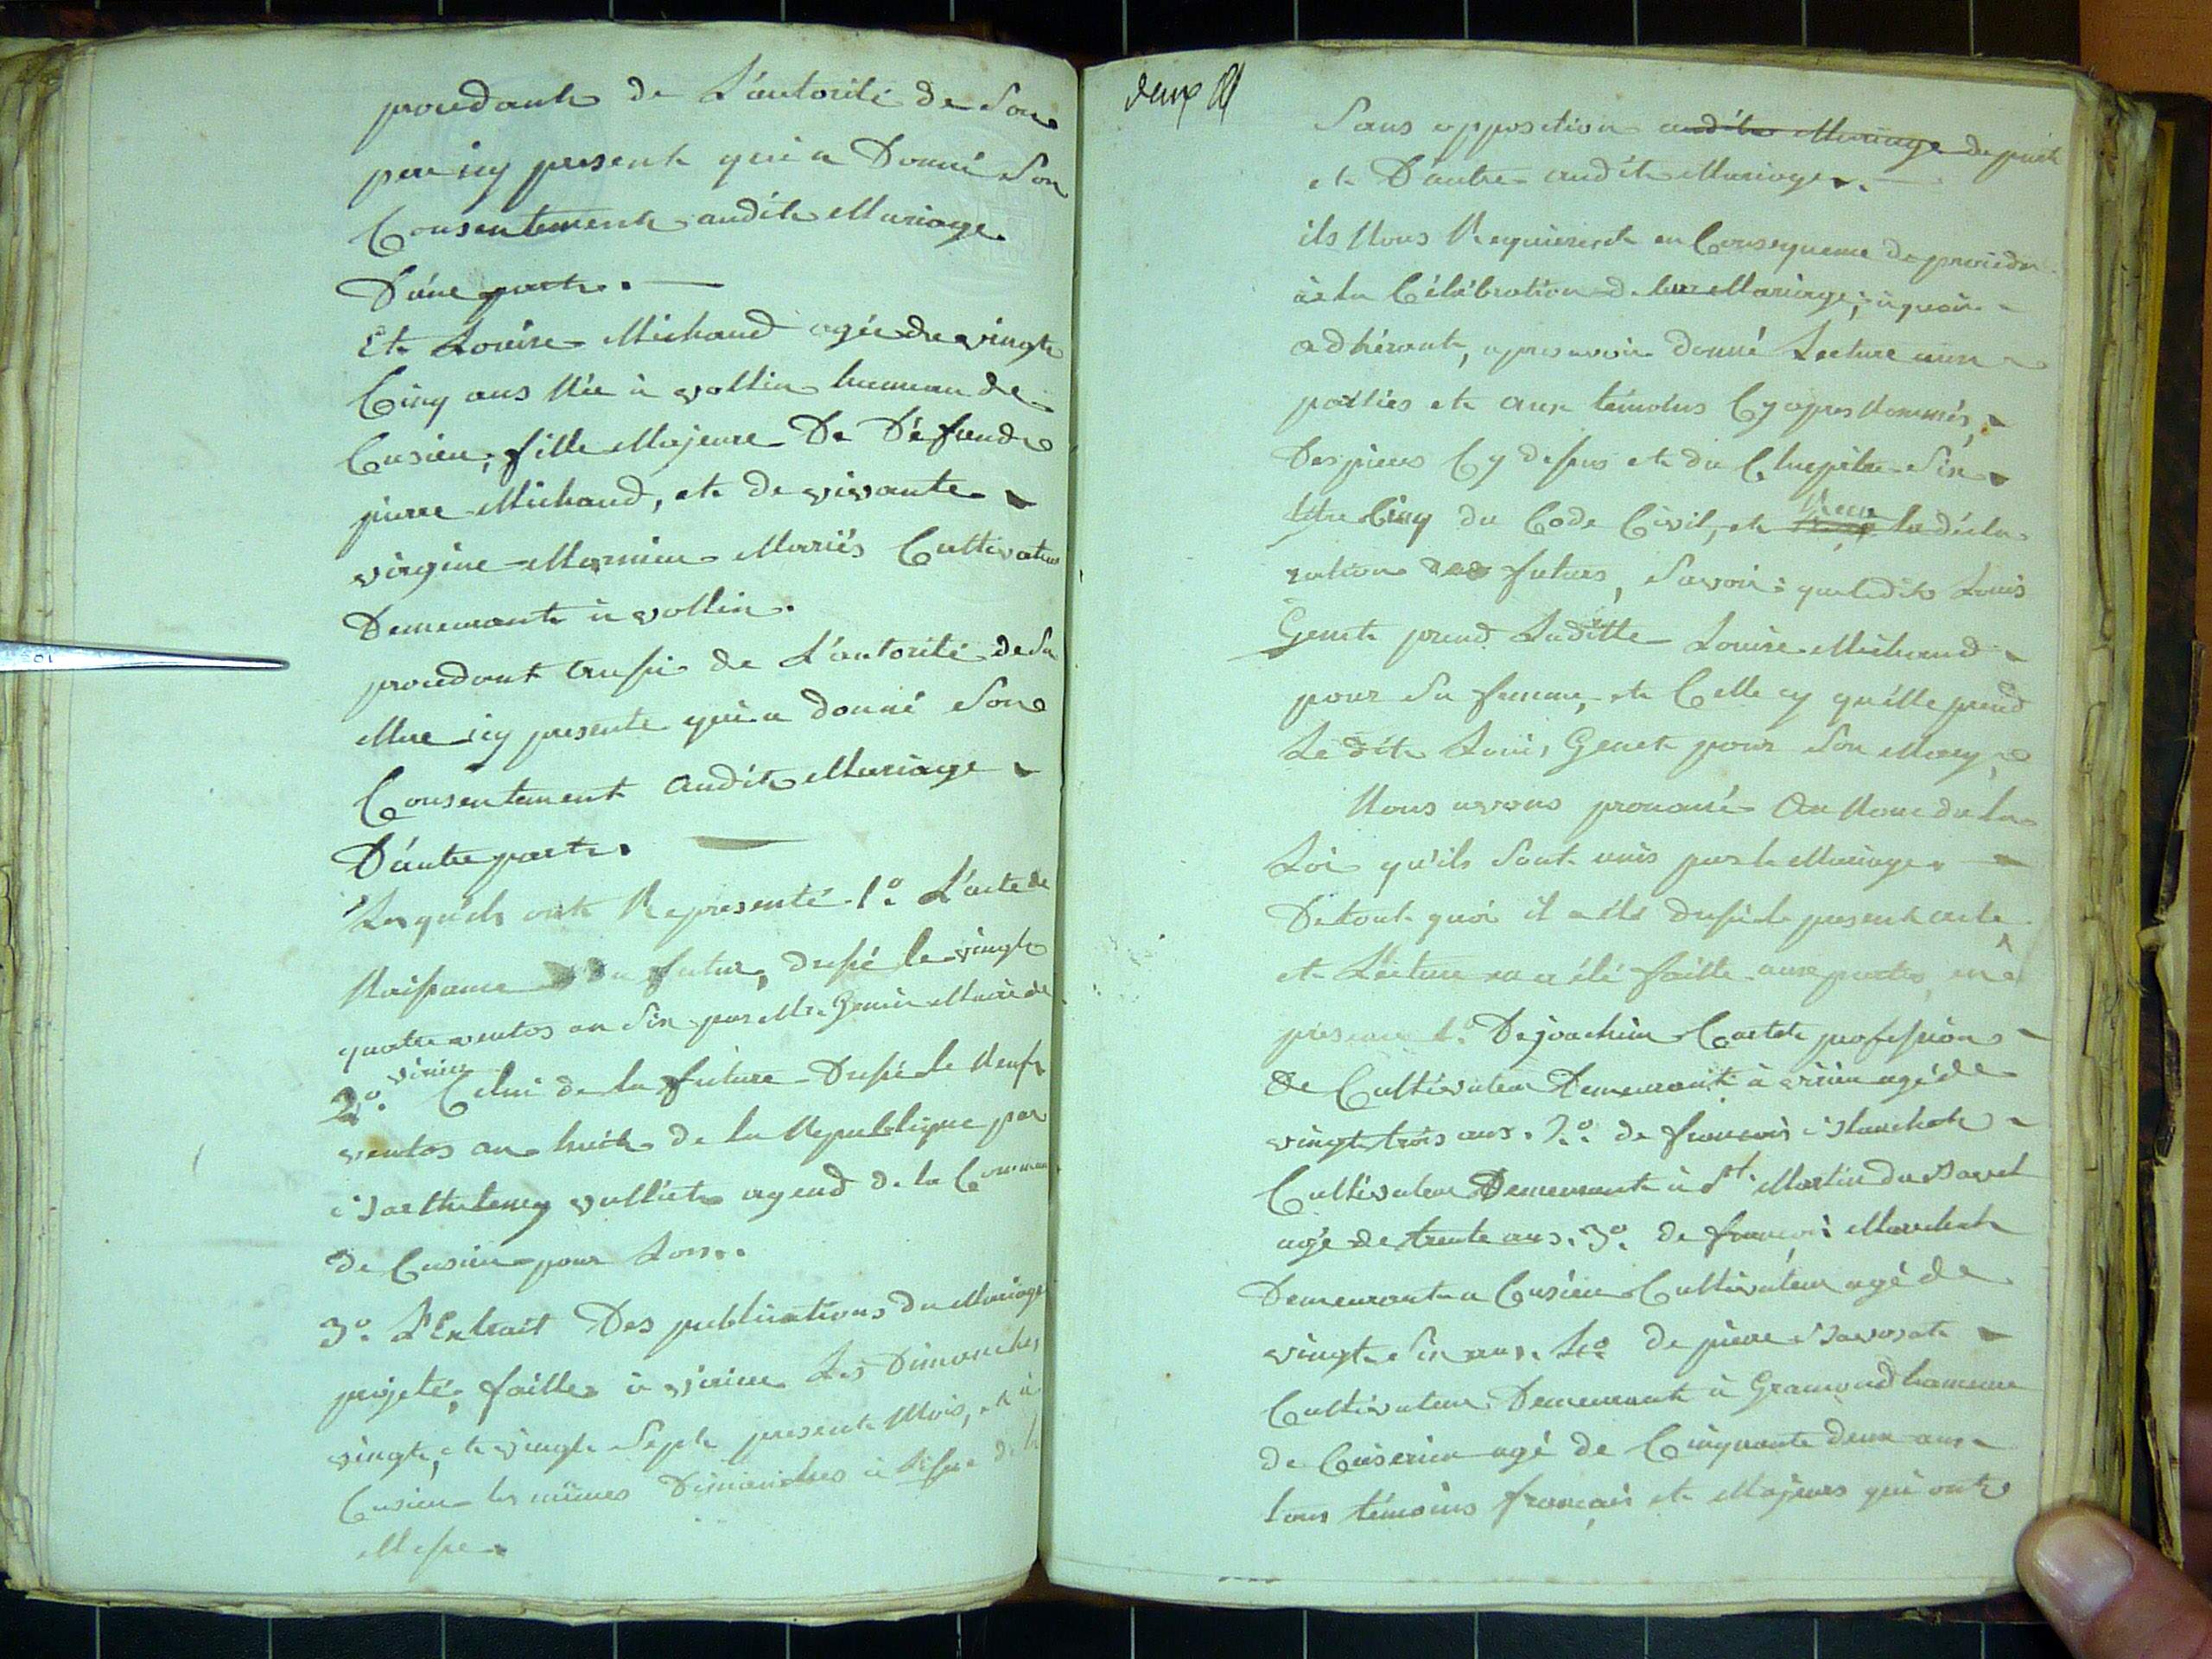 procedant de L'autorité de Son
pere icy present qui a Donné Son
Consentement audit Mariage
D'une part. —
Et Louise Michaud agée de vingt
Cinq ans Née à vollin hameau de
Cusieu, fille Majeure De Défund
pierre Michaud, et de vivante
virgine Mornieu Mariés Cultivateurs
Demeurant à vollin.
procedant aussi de L'autorité de Sa
Mere icy presente qui a donné Son
Consentement audit Mariage
D'autre part. —
Lesquels ont Representé 1°. L'acte de
Naissance du futur, dressé le vingt
quatre ventos an Six par Mre. Genin Maire de
virieu
2°. Celui de la future Dressé le Neuf
ventos an huit de la Republique par
Barthelemy vulliet agend de la Commune
de Cusieu pour Lors.
3°. L'Extrait Des publications du Mariage
projeté, faittes à virieu Les Dimanches
vingt, et vingt Sept present Mois, et à
Cusieu les mêmes Dimanches à l'issue de la
Messe.
deux
Sans opposition audit Mariage de part
et D'autre audit Mariage. —
ils Nous Requierent en Consequence de proceder
à la Célébration de leur Mariage; à quoi
adhérant, apres avoir donné Lecture aux
parties et aux témoins Cy apres Nommés,
Des pieces Cy dessus et du Chapitre Six
titre Cinq du Code Civil, et Recu la décla
ration des futurs, Savoir: que ledit Louis
Genet prend Laditte Louise Michaud
pour Sa femme, et Celle cy qu'elle prend
Le dit Louis Genet pour Son Mary,
Nous avons prononcé Au Nom de la
Loi qu'ils Sont unis par le Mariage.
De tout quoi il a été dressé le present acte
et Lecture en a été faitte aux parties, en
presence 1°. De joachim Cartet profession
de Cultivateur Demeurant à virieu agé de
vingt trois ans. 2°. de francois Blanchet
Cultivateur Demeurant à St. Martin de Bavel
agé de trente ans. 3°. de françois Marchet
Demeurant a Cusieu Cultivateur agé de
vingt Six ans. 4°. De pierre Bavosat
Cultivateur Demeurant à Gramond hameau
de Ceiserieu agé de Cinquante deux ans
tous témoins français et Majeurs qui ont